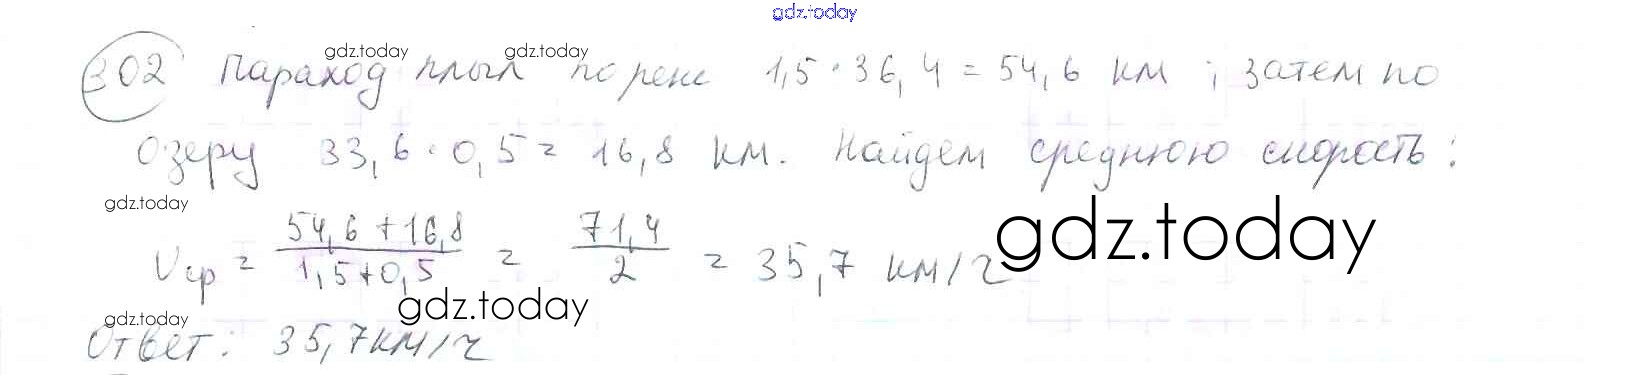 gdz.today
gdz.today gdz.today
302 Параход плыл по реке 1,5 · 36,4 = 54,6 км ; затем по
gdz.today
озеру 33,6 · 0,5 = 16,8 км. Найдем среднюю скорость:
gdz.today
Vср = (54,6 + 16,8)/(1,5 + 0,5) = 71,4/2 = 35,7 км/ч
gdz.today
gdz.today
gdz.today
Ответ: 35,7 км/ч